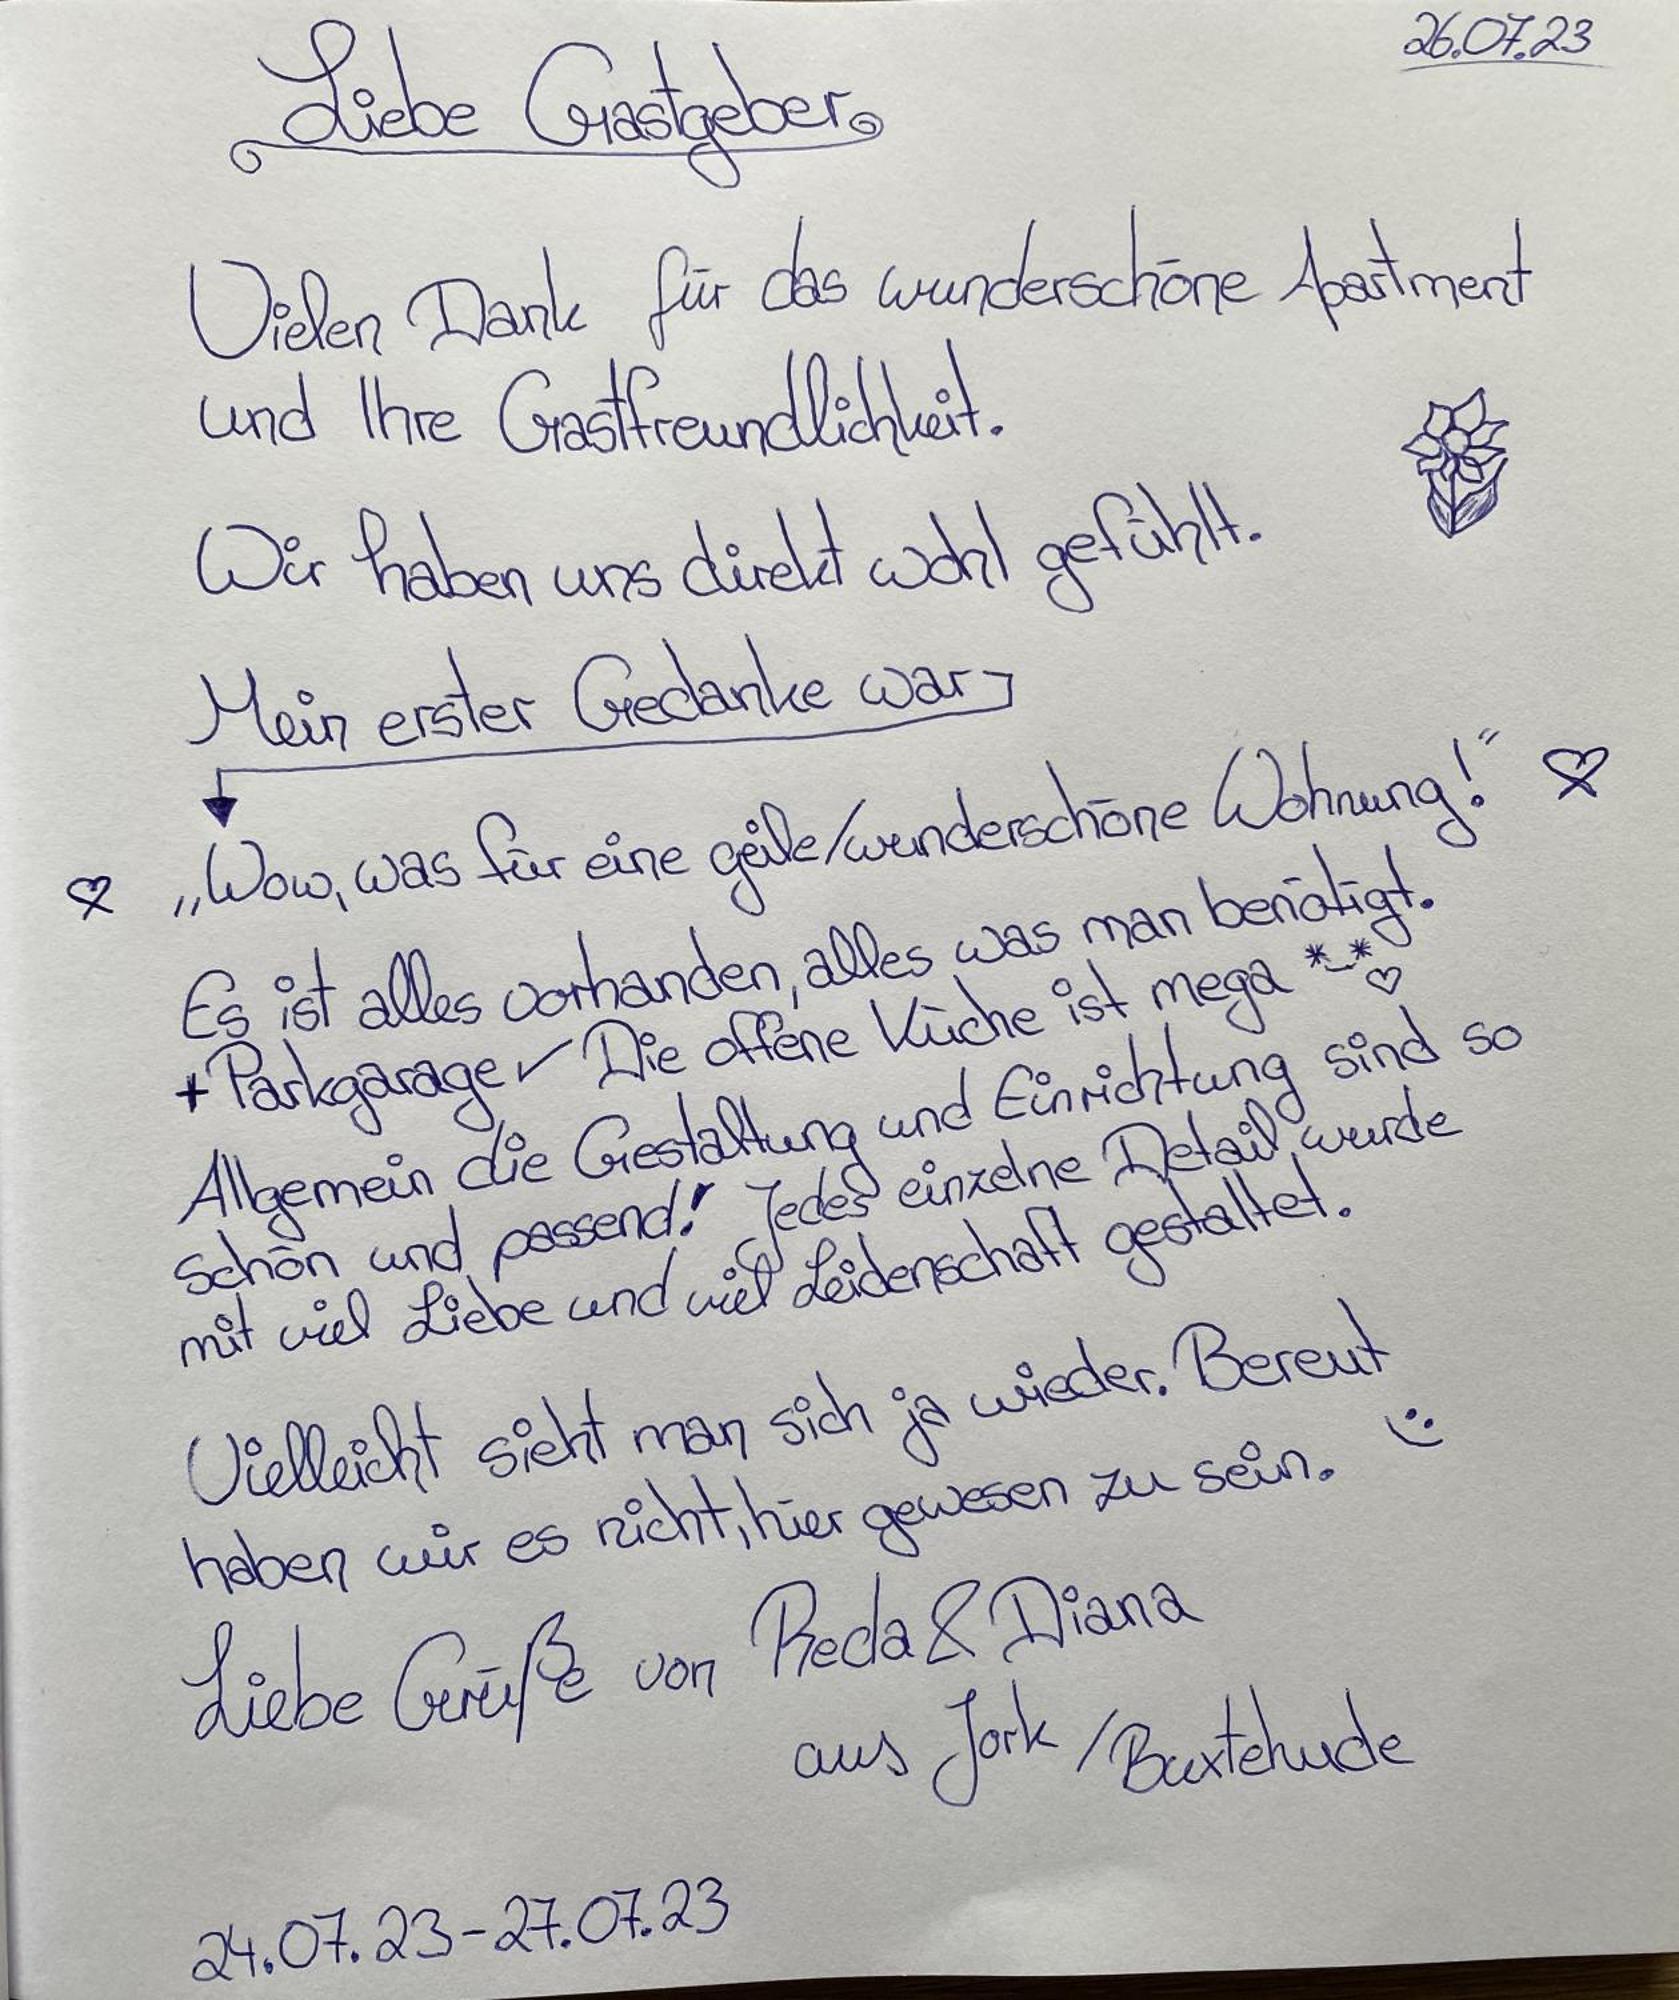 26.07.23
Liebe Gastgeber
Vielen Dank für das wunderschöne Apartment
und Ihre Gastfreundlichkeit.
Wir haben uns direkt wohl gefühlt.
Mein erster Gedanke war
„Wow, was für eine geile/wunderschöne Wohnung!“
Es ist alles vorhanden, alles was man benötigt.
+Parkgarage✓ Die offene Küche ist mega *-* ♡
Allgemein die Gestaltung und Einrichtung sind so
schön und passend! Jedes einzelne Detail wurde
mit viel Liebe und viel Leidenschaft gestaltet.
Vielleicht sieht man sich ja wieder. Bereut
haben wir es nicht, hier gewesen zu sein. :)
Liebe Grüße von Reda & Diana
aus Jork / Buxtehude
24.07.23-27.07.23